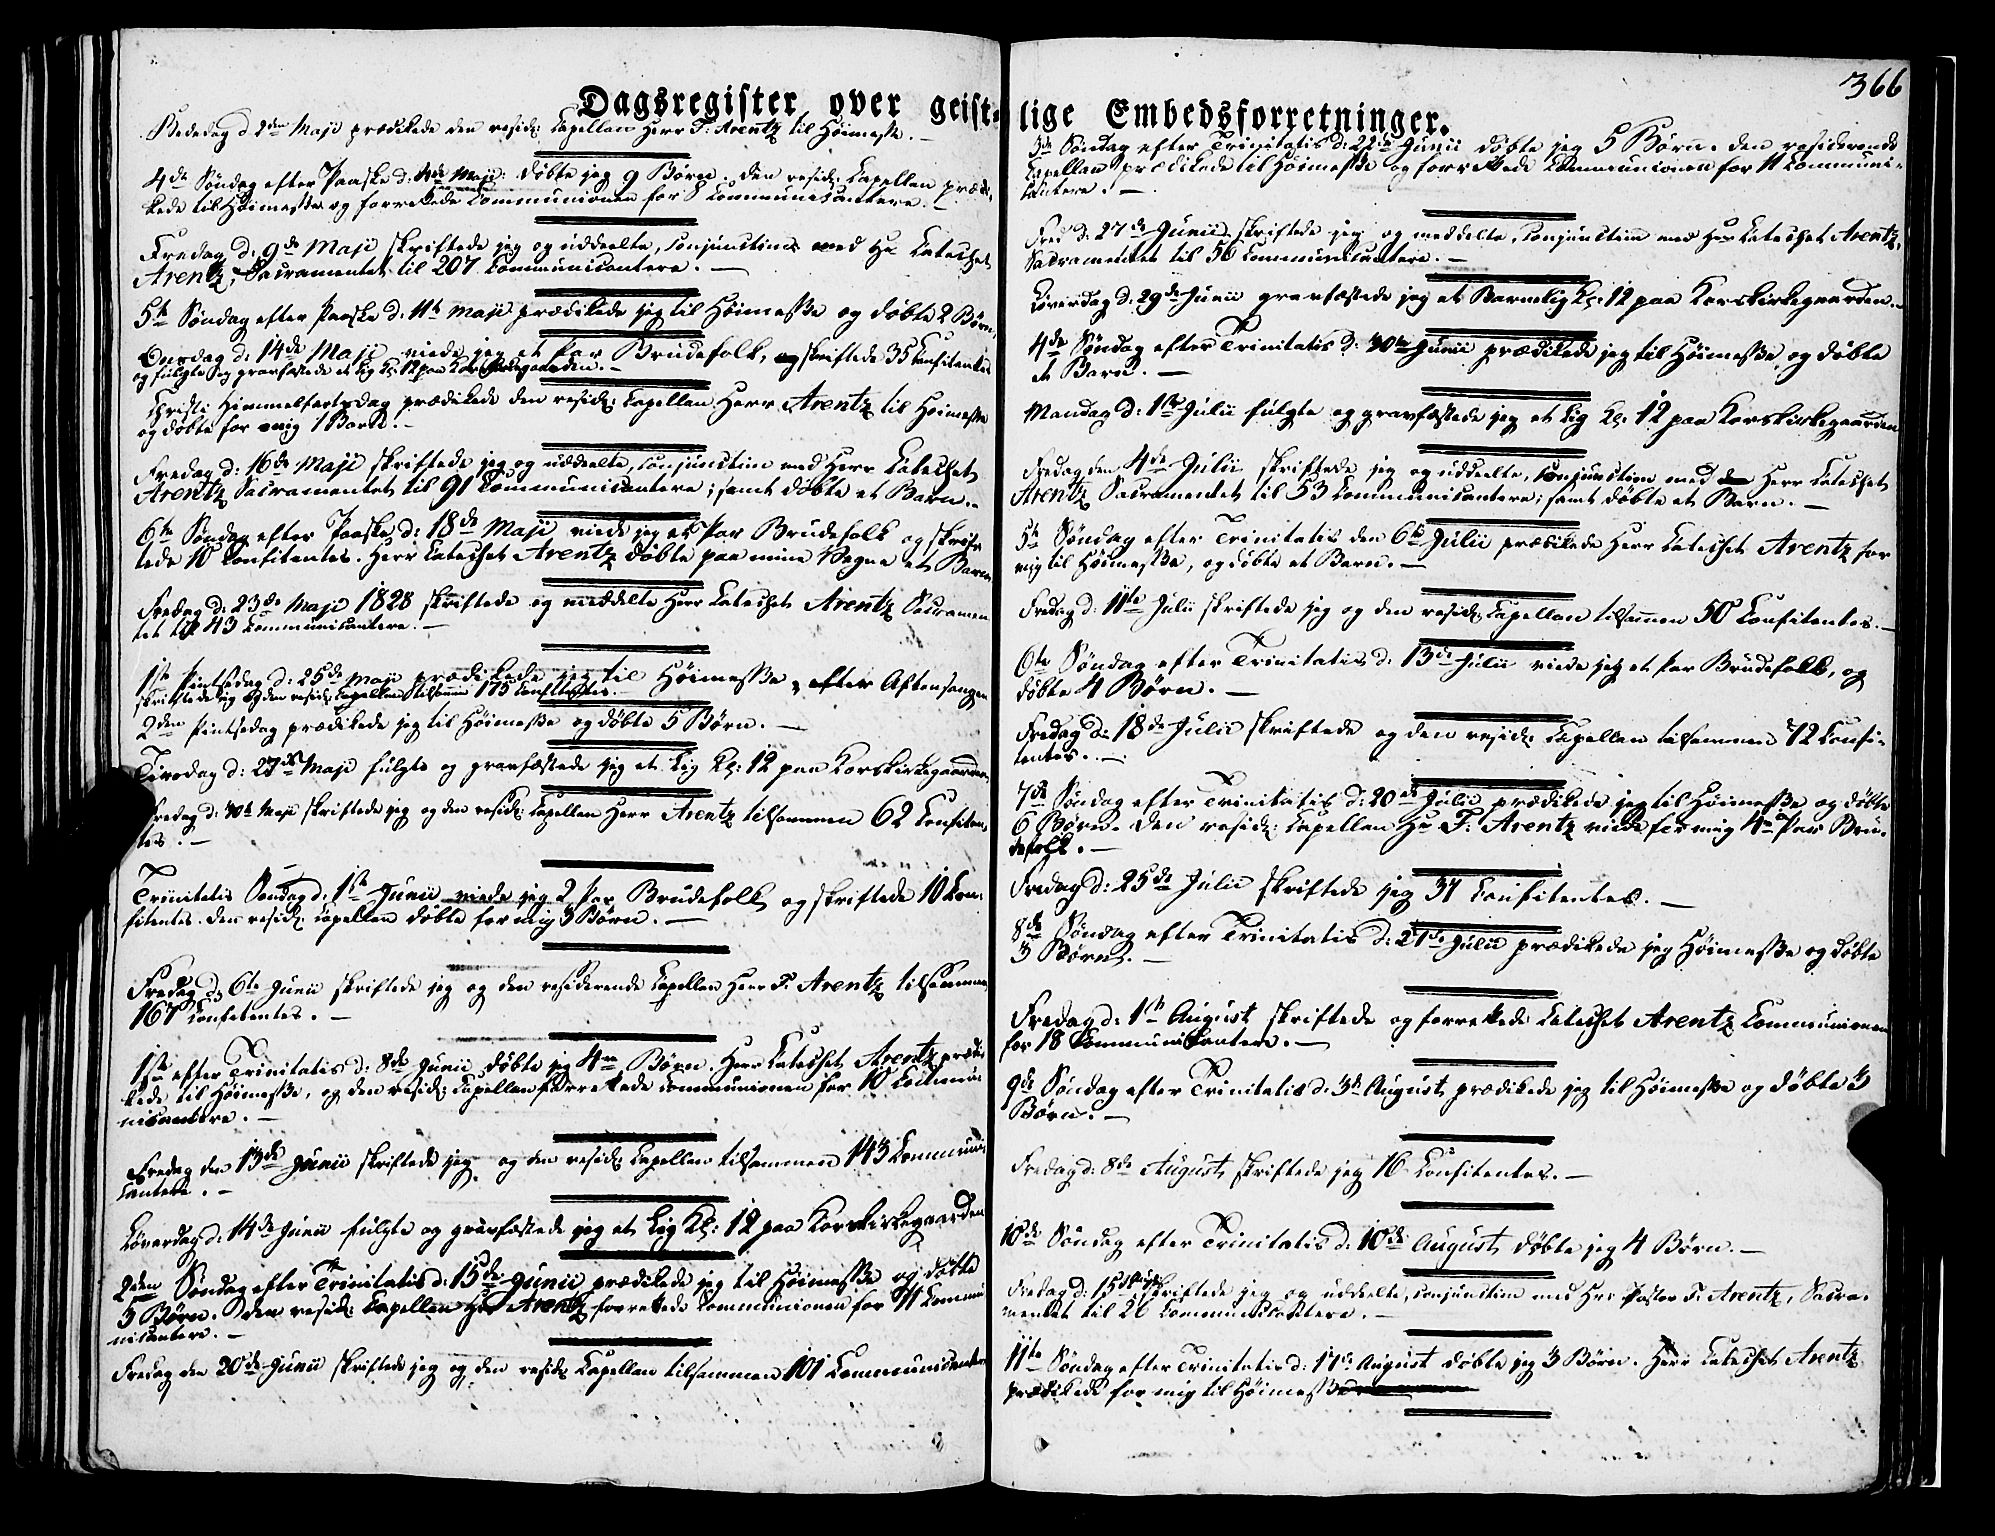 Dagsregister over geistlige Embedsforretninger.
366
Bededag d 2den Maji prædikede den resid: Capellan Herr F: Arentz til Höimesse.
4de Söndag efter Paaske d: Maji: döbte jeg 9 Börn. Den resid: Capellan prædi-
kede til Höimesse og forrettede Communionen for 8 Communicantere.
Fredag d: 9de Maji skriftede jeg og uddeelte, conjunctim med Hr Catechet
Arentz, Sacramentet til 207 Communicantere.
5te Söndag efter Paaske d: 11te Maji prædikede jeg til Höimesse og döbte 2 Börn
Onsdag d: 14de Maji viede jeg et Par Brudefolk, og skriftede 35 Confitentes
og fulgte og gravfæstede et Lig Kl: 12 paa Korskirkegaarden.
Christi Himmelfartsdag prædikede den resid: Capellan Herr Arentz til Höimesse
og döbte for mig 1 Barn.
Fredag d: 16de Maji skriftede jeg og uddeelte, conjunctim med Herr Catechet
Arentz Sacramentet til 91 Communicantere; samt döbte et Barn.
6te Söndag efter Paaske d: 18de Maji viede jeg et Par Brudefolk og skrif-
tede 10 Confitentes. Herr Catechet Arentz döbte paa mine Vegne et Barn
Fredag d: 23de Maji 1828 skriftede og meddelte Herr Catechet Arentz Sacramen
tet til 43 Communicantere.
1ste Pintsedag d: 25de Maji prædikede jeg til Höimesse, efter Aftensangen
skriftede jeg og den resid: Capellan tilsammen 175 Confitentes.
2den Pintsedag prædikede jeg til Höimesse og döbte 5 Börn.
Tirsdag d: 27de Maji fulgte og gravfæstede jeg et Lig Kl: 12 paa Korskirkegaarden
Fredag d: 30te Maji skriftede jeg og den resid: Capellan Herr Arentz tilsammen 62 Confiten-
tes.
Trinitatis Söndag d: 1ste Junii viede jeg 2 Par Brudefolk og skriftede 10 Con-
fitentes. Den resid: Capellan döbte for mig 3 Börn.
Fredag d. 6te Junii skriftede jeg og den residerende Capellan Herr F. Arentz tilsammen
167 Confitentes.
1ste efter Trinitatis d: 8de Junii döbte jeg 4re Börn. Herr Catechet Arentz prædi-
kede til Höimesse, og den resid: Capellan forrettede Communionen for 10 Commu
nicantere.
Fredag den 13de Junii skriftede jeg og den resid: Capellan tilsammen 143 Communi
cantere.
Löverdag d: 14de Junii fulgte og gravfæstede jeg et Lig Kl: 12 paa Korskirkegaarden
2den Söndag efter Trinitatis d: 15de Junii prædikede jeg til Höimesse og döbte
3 Börn. Den resid: Capellan Herr Arentz forrettede Communionen for 11 Commu
nicantere.
Fredag den 20de Junii skriftede jeg og den resid: Capellan tilsammen 101 Communicanter
3de Söndag efter Trinitatis d: 22de Junii döbte jeg 5 Börn. Den residerende
Capellan prædikede til Höimesse og forrettede Communionen for 11 Communi-
cantere.
Fred d: 27de Junii skriftede jeg og meddelte, conjunctim med Herr Catechet Arentz,
Sacramentet til 56 Communicantere.
Löverdag d: 29de Junii gravfæstede jeg et Barnelig Kl: 12 paa Korskirkegaarden.
4de Söndag efter Trinitatis d: 30te Junii prædikede jeg til Höimesse, og döbte
et Barn.
Mandag d: 1ste Julii fulgte og gravfæstede jeg et Lig Kl: 12 paa Korskirkegaarden
Fredag den 4de Julii skriftede jeg og uddeelte, conjunctim med Herr Catechet
Arentz Sacramentet til 53 Communicantere; samt döbte et Barn.
5te Söndag efter Trinitatis den 6te Julii prædikede Herr Catechet Arentz for
mig til Höimesse, og döbte et Barn.
Fredag d: 11te Julii skriftede jeg og den resid: Capellan tilsammen 50 Confitentes.
6te Söndag efter Trinitatis d: 13de Julii viede jeg et Par Brudefolk, og
döbte 4 Börn.
Fredag d: 18de Julii skriftede og den resid: Capellan tilsammen 72 Confi-
tentes.
7de Söndag efter Trinitatis d: 20de Julii prædikede jeg til Höimesse og döbte
6 Börn. Den resid: Capellan Hr F: Arentz viede for mig 4re Par Bru-
defolk.
Fredag d: 25de Julii skriftede jeg 37 Confitentes.
8de Söndag efter Trinitatis d: 27de Julii prædikede jeg Höimesse og döbte
3 Börn.
Fredag d: 1ste August skriftede og forrettede Catechet Arentz Communionen
for 18 Communicantere.
9de Söndag efter Trinitatis d. 3de August prædikede jeg til Höimesse og döbte 3
Börn.
Fredag d: 8de August skriftede jeg 16 Confitentes.
10de Söndag efter Trinitatis d: 10de August döbte jeg 4 Börn.
Fredag d: 15de August skriftede jeg og uddeelte, conjunctim med Herr Pastor F. Arentz, Sacra-
mentet til 26 Communicantere.
11te Söndag efter Trinitatis d: 17de August döbte jeg 3 Börn. Herr Catechet Arentz
prædikede for mig til Höimesse